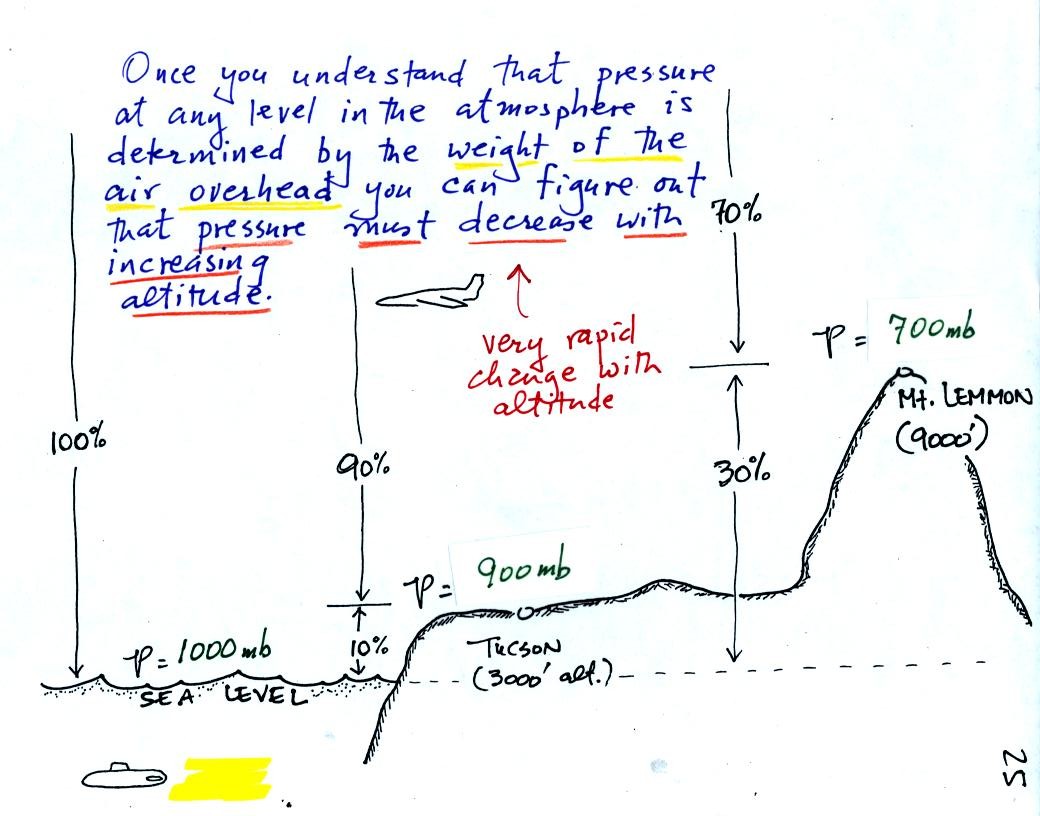 Once you understand that pressure
at any level in the atmosphere is
determined by the weight of the
air overhead you can figure out
that pressure must decrease with
increasing
altitude.
very rapid
change with
altitude
70%
P = 700mb
Mt. LEMMON
(9000')
100%
90%
30%
P = 900mb
10%
P = 1000mb
TUCSON
(3000' alt.)
SEA LEVEL
25